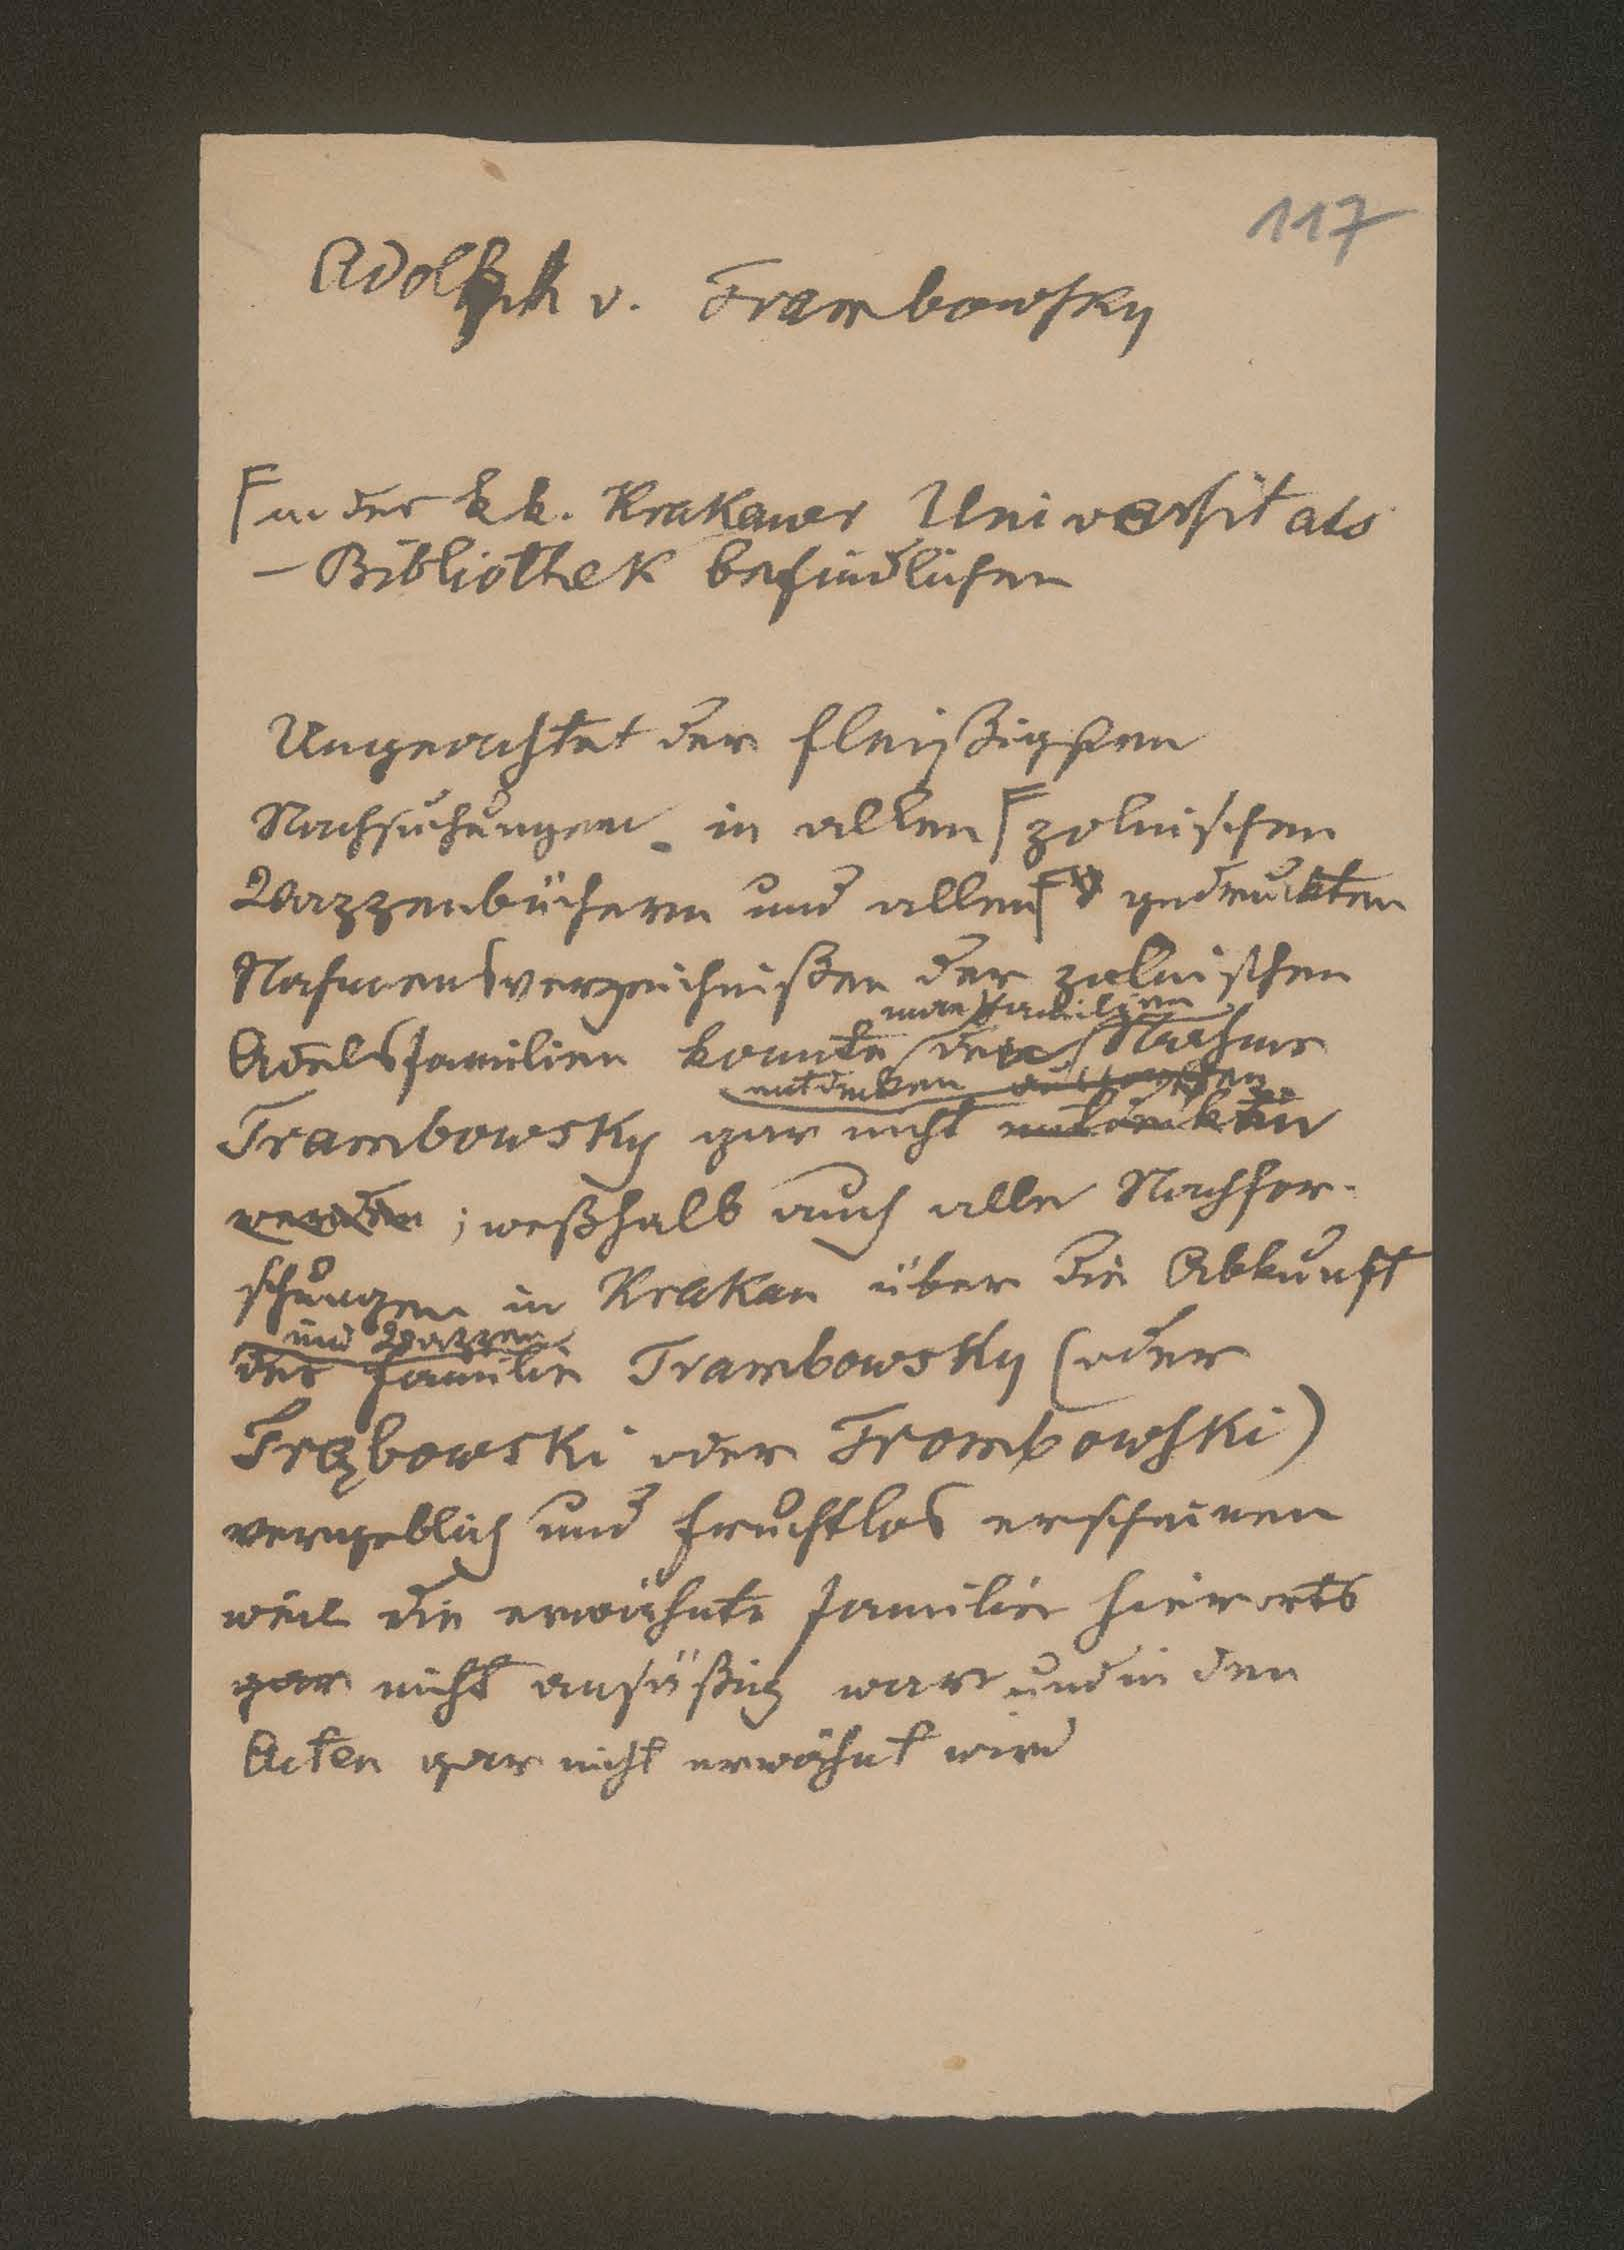 117
Adolph v. Trambowsky
in der k k. Krakauer Universitats
- Bibliothek befindlichen
Ungeachtet der fleißigsten
Nachsuchungen in allen polnischen
Wappenbüchern und allen gedruckten
Nahmensverzeichnißen der polnischen
man Familien
Adelsfamilien konnte den Nahmen
entdecken
Trambowsky gar nicht entdeckt
werden ; weßhalb auch alle Nachfor-
schungen in Krakau über die Abkunft
und Wappen
der Familie Trambowsky (oder
Trąbowski oder Trombowski)
vergeblich und fruchtlos erscheinen
weil die erwähnte Familie hierorts
gar nicht ansäßig war und in den
Acten gar nicht erwähnt wird